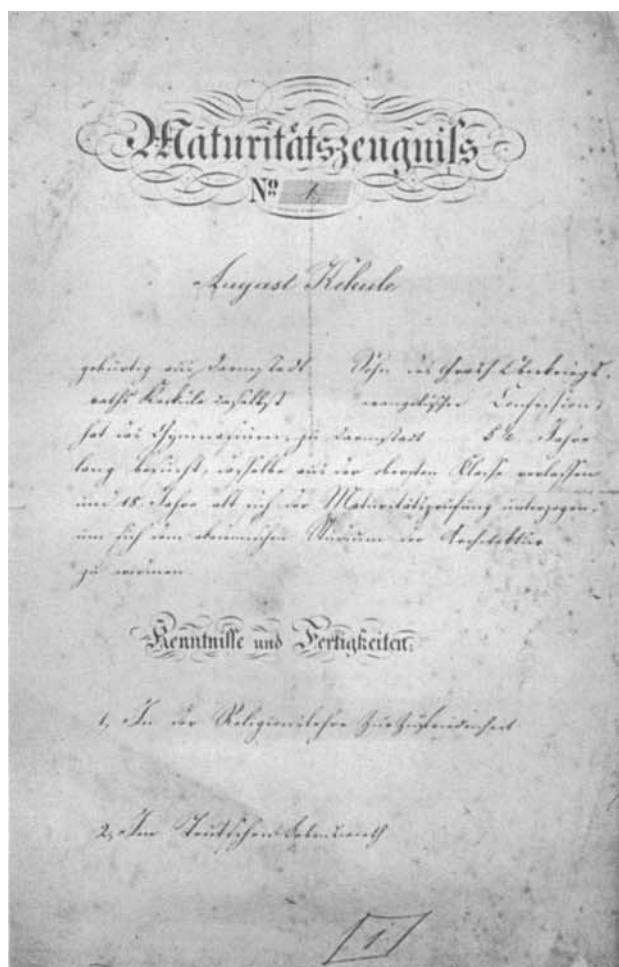 Maturitätszeugniſs
No 1.
August Kekule
gebürtig aus Darmstadt Sohn des Großh. Oberkriegs-
raths Kekule daselbst evangelischer Confession,
hat das Gymnasium zu Darmstadt 5½ Jahre
lang besucht, dasselbe aus der obersten Classe verlassen
und 18 Jahre alt sich der Maturitätsprüfung unterzogen,
um sich dem Studium der Architektur
zu widmen.
Kenntnisse und Fertigkeiten:
1, In der Religionslehre Zur Zufriedenheit
2, Im Teutschen
1